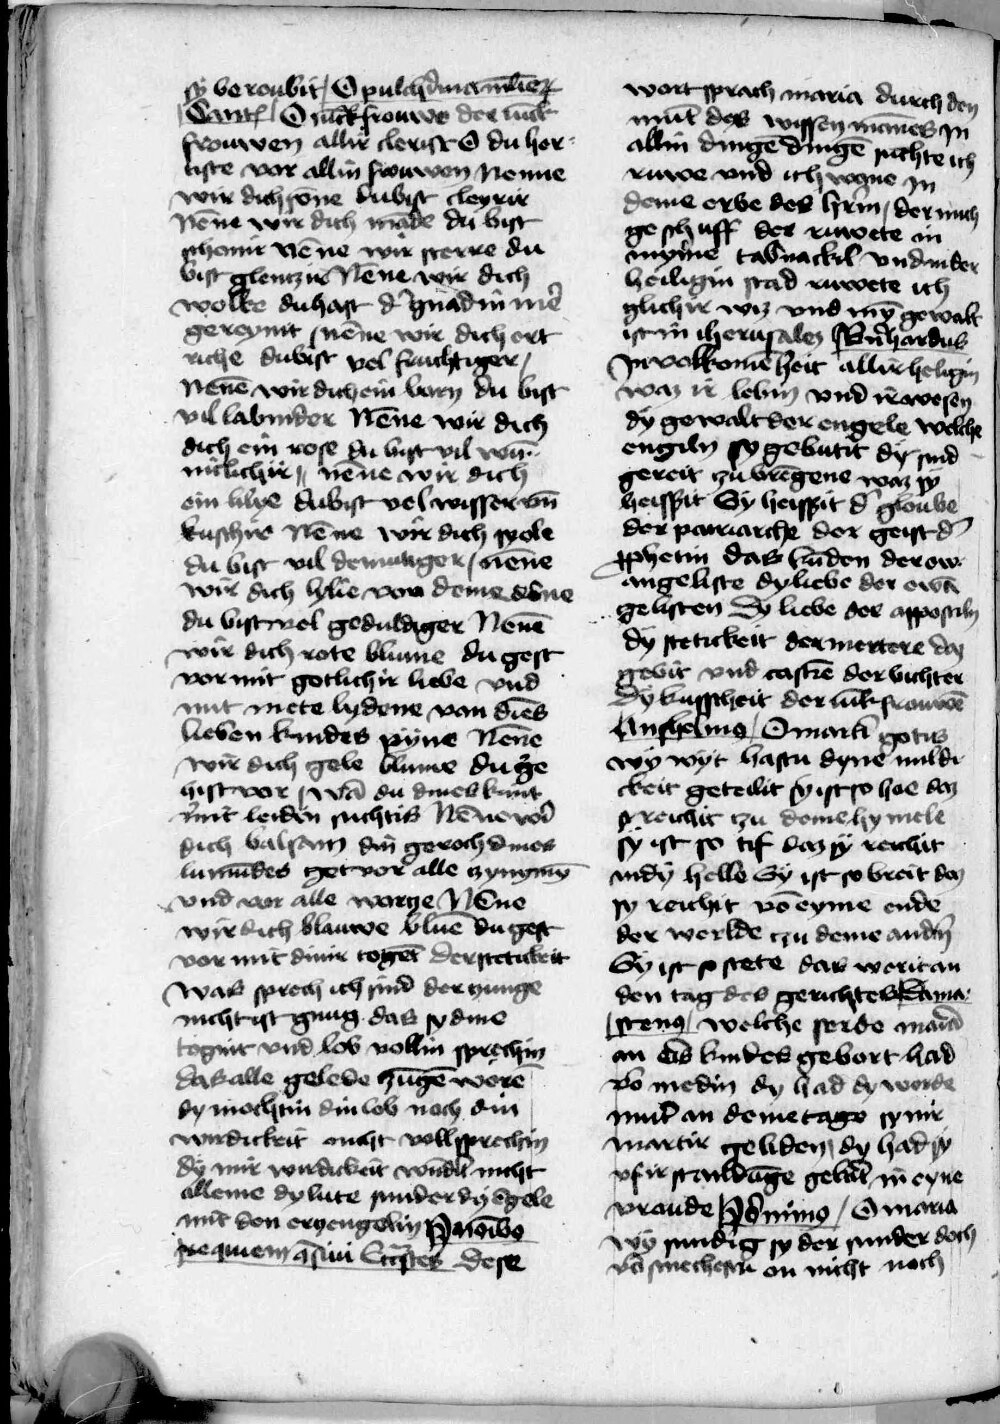 sy beroubit O pulch̓ma mulieꝝ
Cant̓ O iūcfrouwe der iūck
frouwen allir clerist O du her-
liste vor allin frouwen Nenne
wir dich sōne du bist cleyrir
Nēne wir dich māde du bist
schonir Nēne wir sterre du
bist glentzir Nēne wir dich
wolke du hast d̓ gnadin me
gereynit nēne wir dich ert
riche du bist vel fruchtiger
Nenē wir dich ein born du bist
vil labinder Nēne wir dich
dich ein rose du bist vil wū-
niclichir nēne wir dich
ein lilye du bist vel wisser vn̄
kuschir Nēne wir dich vyole
du bist vil demutiger nēne
wir dich lylie von deme
du bist vel geduldiger Nenē
wir dich rote blume du gest
vor mit gotlichir liebe vnd
mit mete lydene von dīes
lieben kindes pyne Nēne
wir dich gele blume du ge
hist vor wā du dines kint
mit leiden suchtis Nēne wir
dich balsam din geroch dines
lumūdes get vor alle
vnd vor alle worcze Nēne
wir dich blauwe blūe du gest
vor mit dinir togēt der stetickeit
Was sprech ich sind der zunge
nicht ist gnug das sy dine
togint vnd lob vollin sprechin
das alle gelede zungē worē
dy mochtin din lob noch din
wirdickeit nicht voll sprechin
dy mir wirdickeit nicht
alleine dy lute sunder dy ēgele
mit den erczengelin Jn oībꝰ
requiem q̄siui Eccs̄tes Dese
wort sprach maria durch den
mut des wysen mānes Jn
allin dingē dingē suchte ich
ruwe vnd ich wone Jn
deme erbe des hrīn der mich
geschuff der ruwete in
myme tab̓nackil vnd in der
heiligin stad ruwete ich
glichir wiz vnd my gewalt
ist in iherusalez Bn̄hardus
Jn volkomēheit allir heligin
waz ir lebin vnd ir wesen
dy gewalt der engele welche
engiln sy gebutit dy sind
gereit zu brēgene waz sy
heissit Sy heissit d̓ gloube
der patriarche der geist d̓
ꝓphetin das kūden der ew-
angeliste dy liebe der ewā
gelisten Dy liebe der apposteln
dy stetickeit der mertere daz
gebit vnd castīe der bichter
Dy kusscheit der iūcfrouwē
Anshelmꝰ O mart̓ gotis
wy wyt hastu dyne mildi
ckeit geteilit sy ist so hoe daz
sy reichit czu deme hymele
sy ist so tif daz sy reichit
in dy helle Sy ist so breit daz
sy reichit vō eyme ende
der werlde czu deme andn̄
Sy ist so stete das werit an
den tag des gerichtes Dama-
scenꝰ welche serde maria
an des kindes gebort had
v̓medin dy had dy worde
mut̓ an deme tage synir
martir geliden dy had sy
vf ir stāldūge gebn̄ in eyne
vroude Jeronimꝰ O maria
wy sundig sy der sunder doch
v̓smehestu on nicht noch